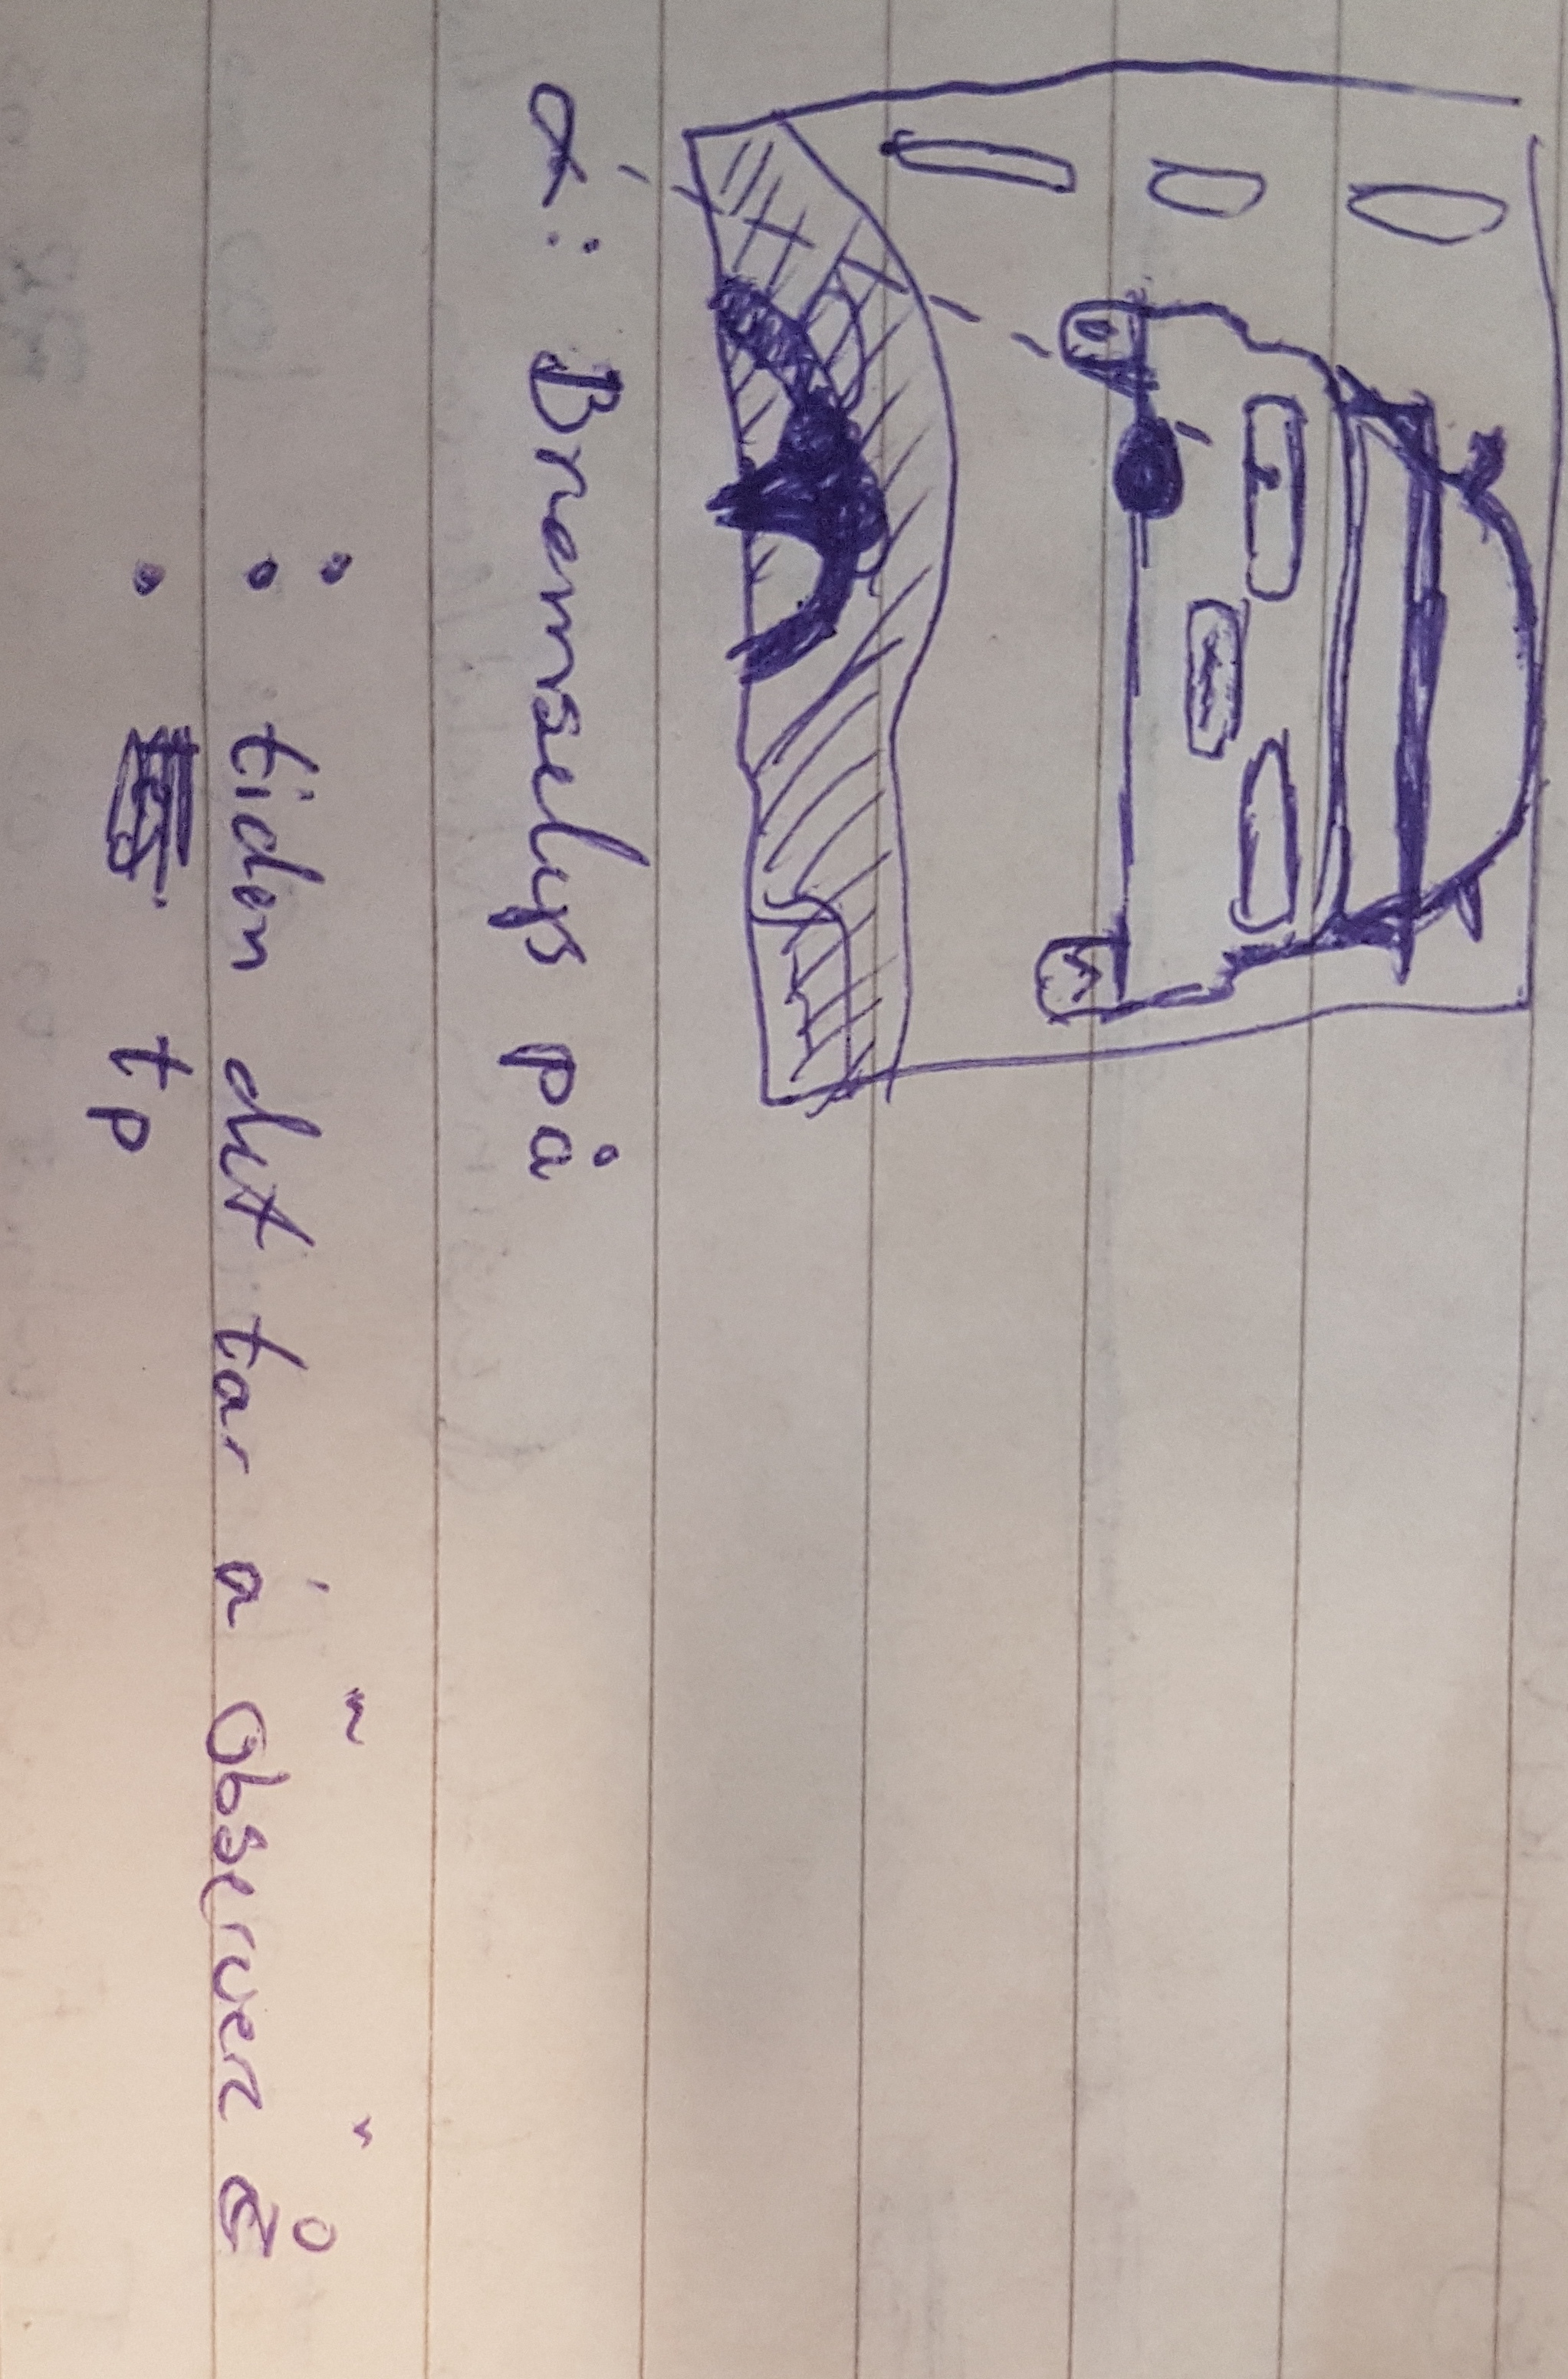 α: Bremselys på
: tiden det tar å "observere"
· tp